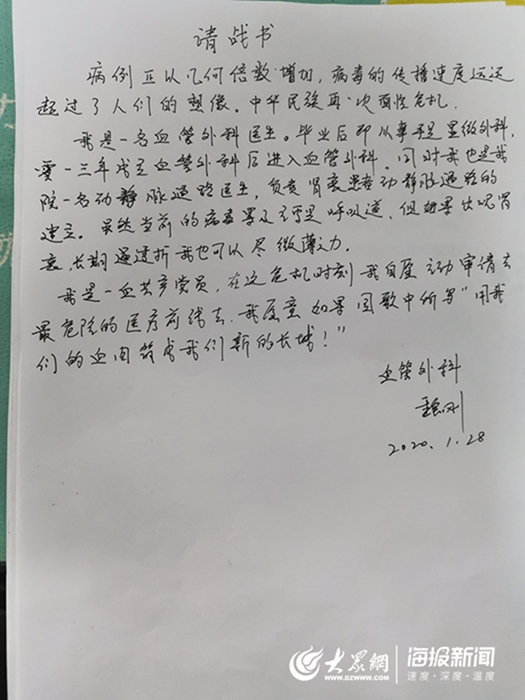 请战书
病例正以几何倍数增加，病毒的传播速度远远
超过了人们的想像。中华民族再一次面临危机。
我是一名血管外科医生。毕业后即从事手足显微外科，
零一三年成立血管外科后进入血管外科，同时我也是我
院一名动静脉通路医生，负责肾衰患者动静脉通路的
建立。虽然当前的病毒累及的是呼吸道，但如果出现肾
衰，长期透析我也可以尽微薄之力。
我是一血共产党员，在这危机时刻我自愿主动申请去
最危险的医疗前线去，我愿意如果国歌中所写“用我
们的血肉筑成我们新的长城！”
血管外科
魏刚
2020.1.28
大众網
WWW.DZWWW.COM
海报新闻
速度·深度·温度